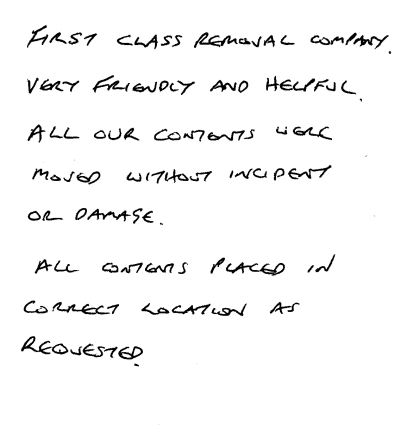 FIRST CLASS REMOVAL COMPANY.
VERY FRIENDLY AND HELPFUL.
ALL OUR CONTENTS WERE
MOVED WITHOUT INCIDENT
OR DAMAGE.
ALL CONTENTS PLACED IN
CORRECT LOCATION AS
REQUESTED.